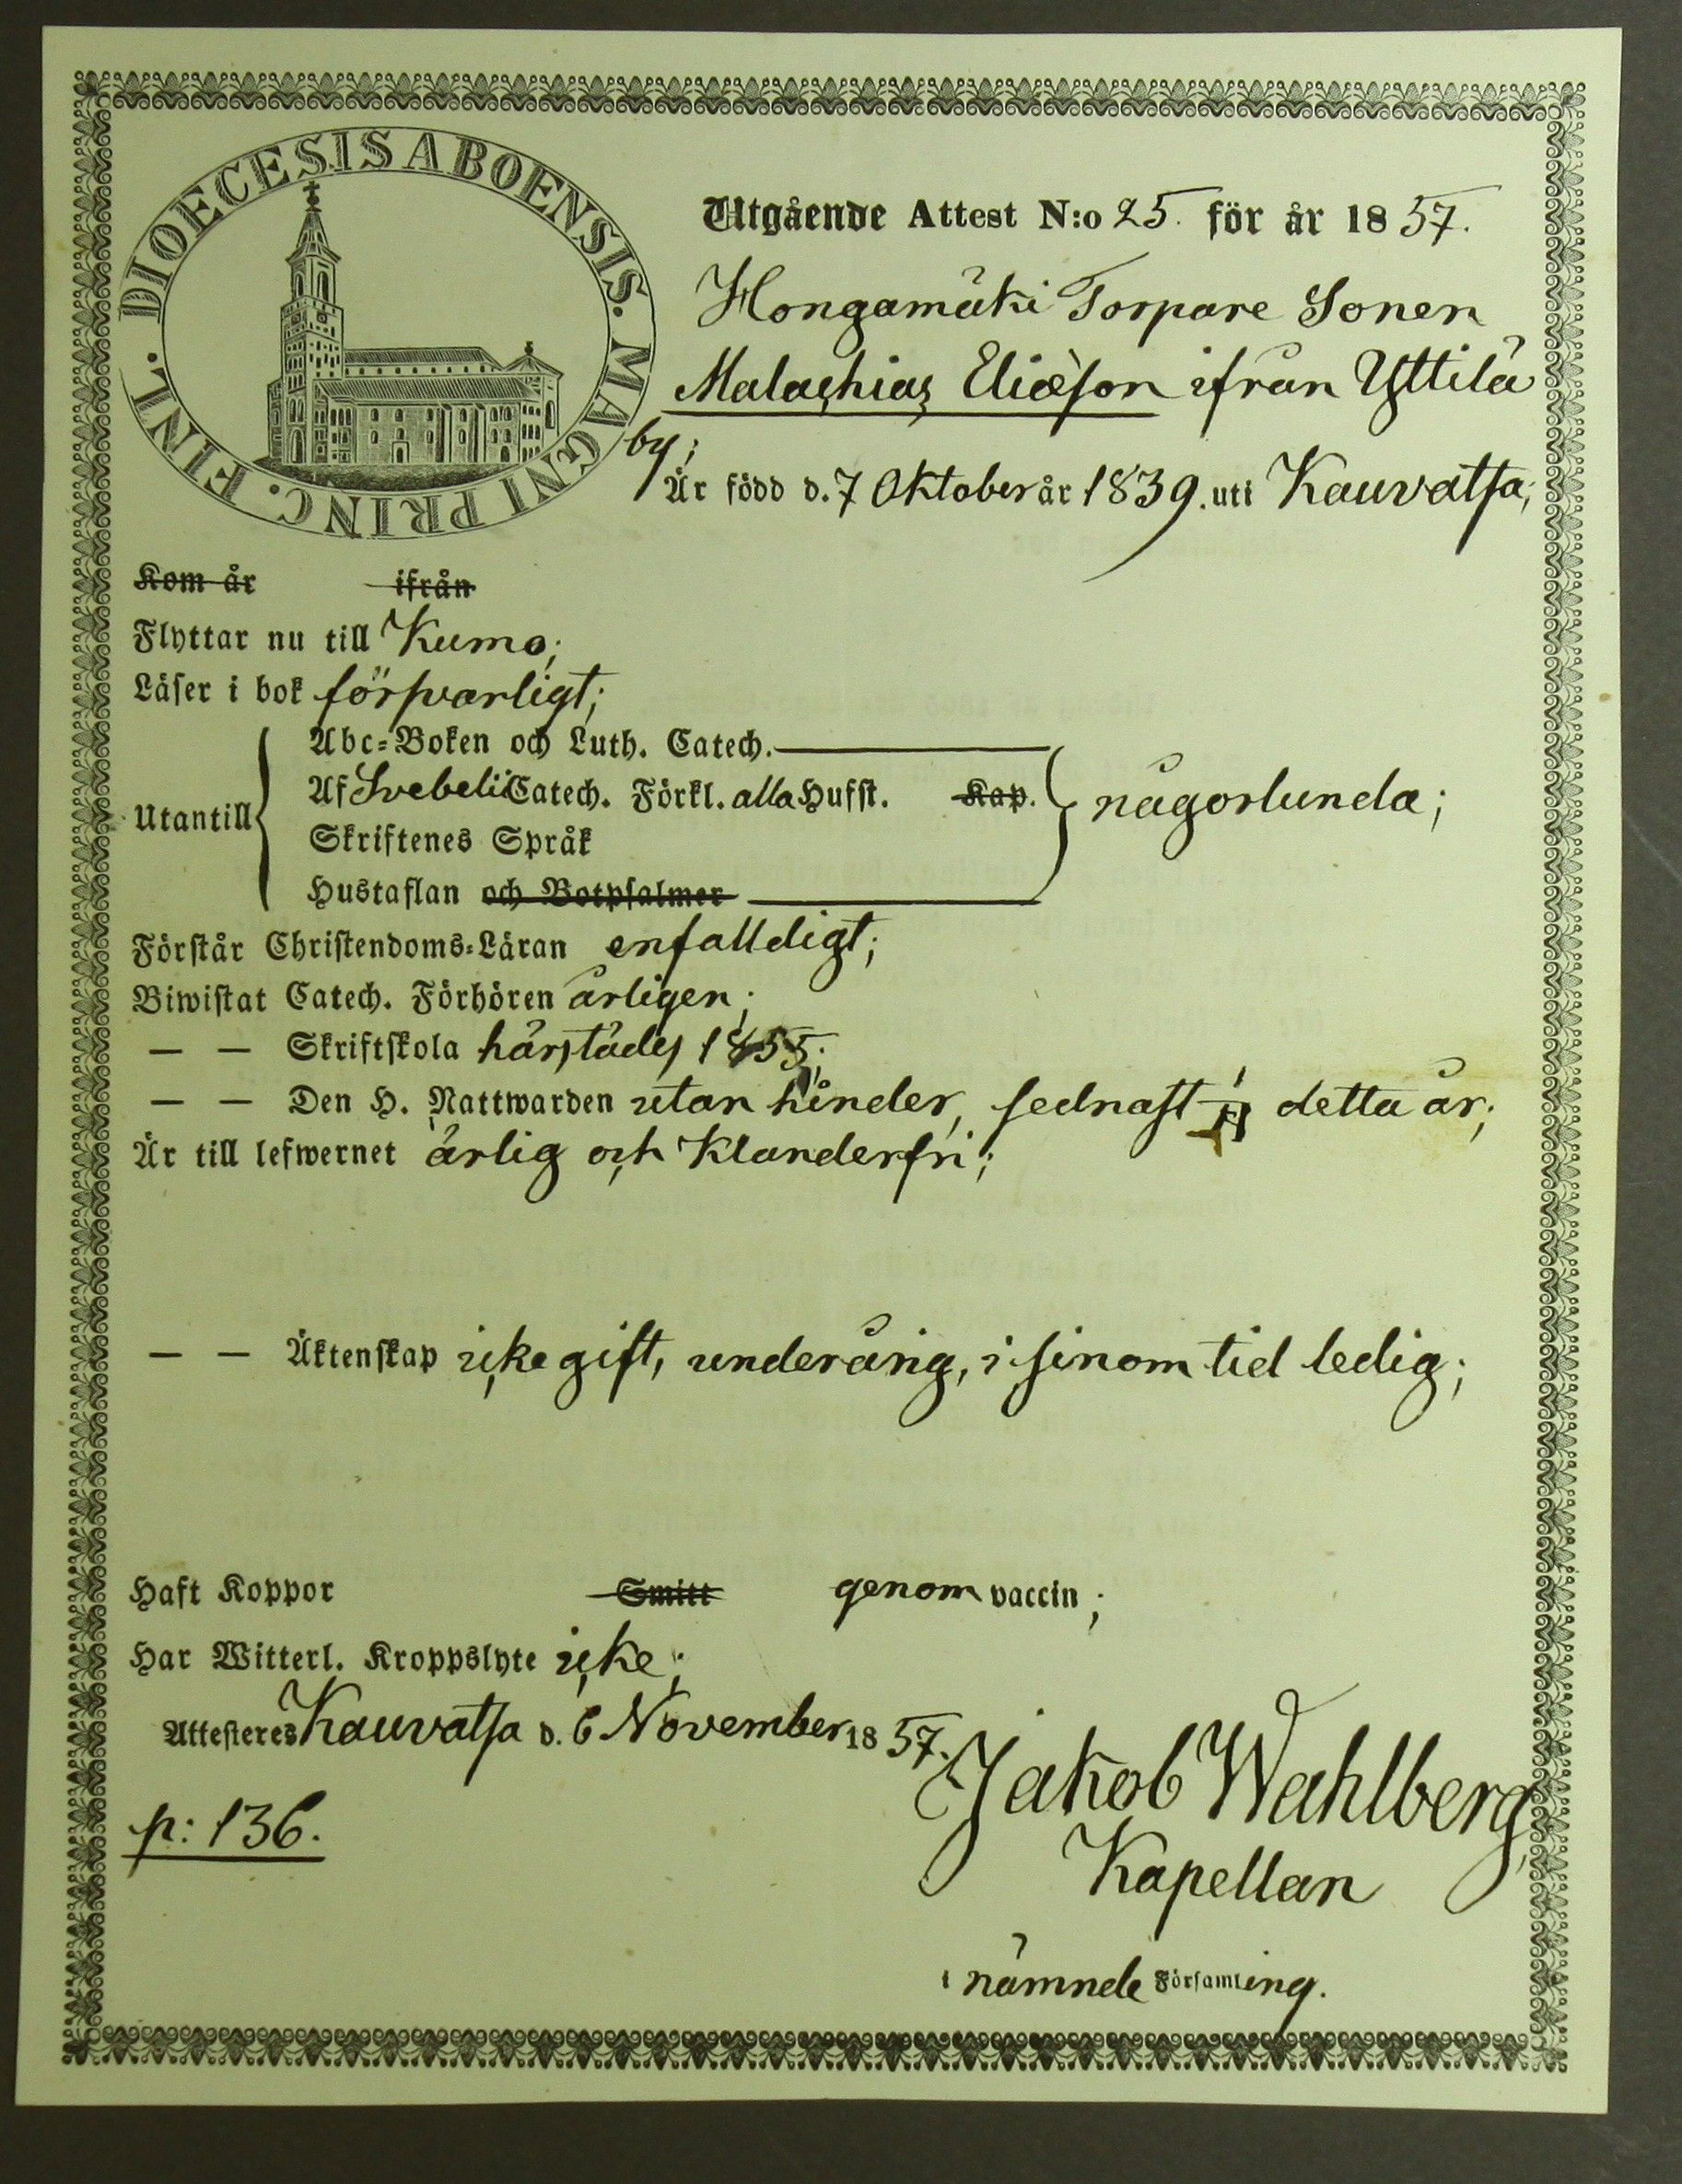 DIOECESIS ABOENSIS. MAGNI PRINC. FINL.
Utgående Attest N:o 25. för år 1857.
Hongamäki Torpare Sonen
Malachias Eliæson ifrån Yttilä
by;
Är född d. 7 Oktober år 1839. uti Kauvatsa;
Kom år ifrån
Flyttar nu till Kumo;
Läser i bok försvarligt;
Abc-Boken och Luth. Catech.
Utantill Af Svebelii Catech. Förkl. alla Hufst. Kap. någorlunda;
Skriftenes Språk
Hustaflan och Botpsalmer
Förstår Christendoms-Läran enfalldigt;
Biwistat Catech. Förhören årligen;
— — Skriftskola härstädes 1855;
— — Den H. Nattwarden utan hinder, sednast detta år;
Är till lefwernet ärlig och klanderfri;
— — Äktenskap icke gift, underårig, i sinom tid ledig;
Haft Koppor Smitt genom vaccin;
Har Witterl. Kroppslyte icke;
Attesteres Kauvatsa d. 6 November 1857.
Jakob Wahlberg,
p: 136.
Kapellan
i nämnde Församling.